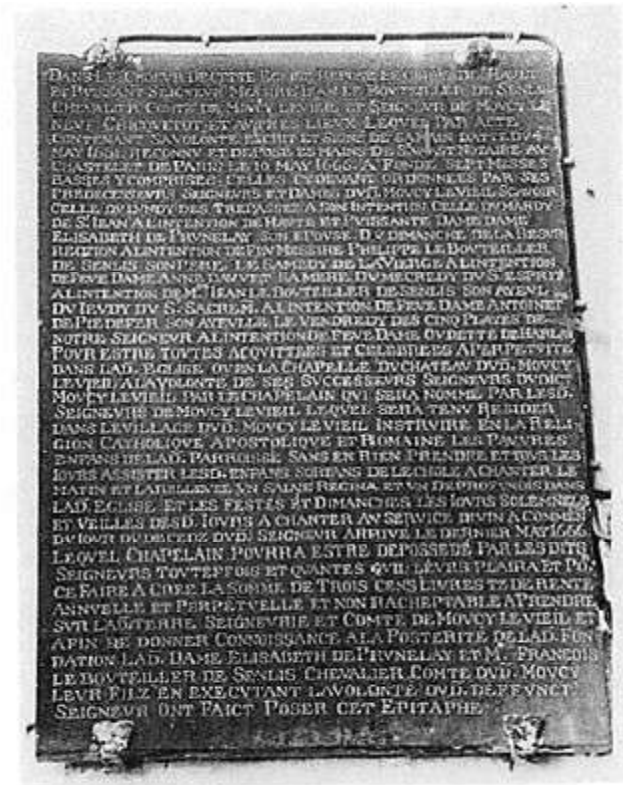 DANS LE CHOEVR DE CETTE EGLISE REPOSE LE CORPS DE HAULT
ET PVISSANT SEIGNEVR MESSIRE IEAN LE BOVTEILLER DE SENLIS
CHEVALIER COMTE DE MOVCY LE VIEIL ET SEIGNEVR DE MOVCY LE
NEVF ET AVTRES LIEVX LEQVEL PAR ACTE
CONTENANT SA VOLONTE ESCRIT ET SIGNE DE SA MAIN DATTE DV
MAY 1661. RECONNV ET DEPOSE ES MAINS DE NOTAIRE AV
CHASTELET DE PARIS LE 10 MAY 1665. A FONDE SEPT MESSES
BASSES Y COMPRISES CELLES CY DEVANT ORDONNEES PAR SES
PREDECESSEVRS SEIGNEVRS ET DAMES DVD. MOVCY LE VIEIL SCAVOIR
CELLE DV LVNDY DES TREPASSES A SON INTENTION CELLE DV MARDY
DE St. IEAN A L'INTENTION DE HAVTE ET PVISSANTE DAME DAME
ELISABETH DE PRVNELAY SON EPOVSE. DV DIMANCHE DE LA RESVR
RECTION A L'INTENTION DE FEV MESSIRE PHILIPPE LE BOVTEILLER
DE SENLIS SON PERE. LE SAMEDY DE LA VIERGE A L'INTENTION
DE FEVE DAME ANNE LAVVET SA MERE DV MECREDY DV St ESPRIT
A L'INTENTION DE Mre IEAN LE BOVTEILLER DE SENLIS SON AYEVL
DV IEVDY DV S. SACREM. A L'INTENTION DE FEVE DAME ANTOINET
DE PIEDEFER SON AYEVLLE LE VENDREDY DES CINQ PLAYES DE
NOTRE SEIGNEVR A L'INTENTION DE FEVE DAME OVDETTE DE HARLAY
POVR ESTRE TOVTES ACQVITTEES ET CELEBREES A PERPETVITE
DANS LAD. EGLISE OV EN LA CHAPELLE DV CHATEAV DVD. MOVCY
LE VIEIL A LA VOLONTE DE SES SVCCESSEVRS SEIGNEVRS DVDICT
MOVCY LE VIEIL PAR LE CHAPELAIN QVI SERA NOMME PAR LESD.
SEIGNEVRS DE MOVCY LE VIEIL LEQVEL SERA TENV RESIDER
DANS LE VILLAGE DVD. MOVCY LE VIEIL INSTRVIRE EN LA RELI
GION CATHOLIQVE APOSTOLIQVE ET ROMAINE LES PAVVRES
ENFANS DE LAD. PARROISSE SANS EN RIEN PRENDRE ET TOVS LES
IOVRS ASSISTER LESD. ENFANS SORTANS DE L'ECHOLE A CHANTER LE
MATIN ET LA RELLEVEE VN SALVE REGINA ET VN DE PROFVNDIS DANS
LAD. EGLISE ET LES FESTES ET DIMANCHES LES IOVRS SOLEMNELS
ET VEILLES DESD. IOVRS A CHANTER AV SERVICE DIVIN A COMMEN
DV IOVR DV DECEDZ DVD. SEIGNEVR ARRIVE LE DERNIER MAY 1666.
LEQVEL CHAPELAIN POVRRA ESTRE DEPOSSEDE PAR LES DITS
SEIGNEVRS TOVTEFFOIS ET QVANTES QV'IL LEVRS PLAIRA ET PO.
CE FAIRE A CREE LA SOMME DE TROIS CENS LIVRES TZ DE RENTE
ANNVELLE ET PERPETVELLE ET NON RACHEPTABLE A PRENDRE
SVR LAD. TERRE SEIGNEVRIE ET COMTE DE MOVCY LE VIEIL ET
AFIN DE DONNER CONNOISSANCE A LA POSTERITE DE LAD. FON
DATION LAD. DAME ELISABETH DE PRVNELAY ET Mre FRANCOIS
LE BOVTEILLER DE SENLIS CHEVALIER COMTE DVD. MOVCY
LEVR FILZ EN EXECVTANT LA VOLONTE DVD. DEFFVNCT
SEIGNEVR ONT FAICT POSER CET EPITAPHE